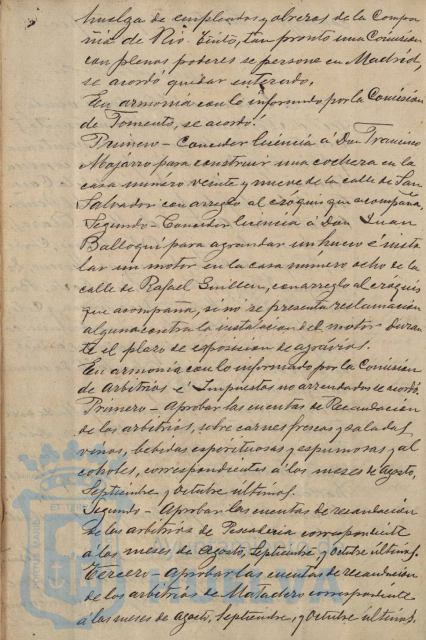 huelga de empleados y obreros de la Compa
ñia de Rio-Tinto, tan pronto una Comision
con plenos poderes se persone en Madrid,
se acordó quedar enterado.
En armonia con lo informado por la Comisión
de Fomento, se acordó:
Primero - Conceder licencia á Don Francisco
Mojarro para construir una cochera en la
casa número veinte y nueve de la calle de San
Salvador con arreglo al cróquis que acompaña,
Segundo - Conceder licencia á Don Juan
Balloqui para agrandar un hueco é insta
lar un motor en la casa número ocho de la
calle de Rafael Guillen, con arreglo al cróquis
que acompaña, si no se presenta reclamacion
alguna contra la instalacion del motor duran
te el plazo de exposicion de agrávios.
En armonia con lo informado por la Comisión
de Arbitrios é Impuestos no arrendados se acordó.
Primero - Aprobar las cuentas de Recaudacion
de los arbitrios, sobre carnes frescas y saladas
vinos, bebidas espirituosas y espumosas y al
coholes, correspondientes á los meses de Agosto,
Septiembre y Octubre últimos.
Segundo - Aprobar las cuentas de recaudacion
de los arbitrios de Pescaderia correspondiente
a los meses de Agosto, Septiembre y Octubre últimos.
Tercero - Aprobar las cuentas de recaudacion
de los arbitrios de Matadero correspondiente
á los meses de Agosto, Septiembre y Octubre últimos.